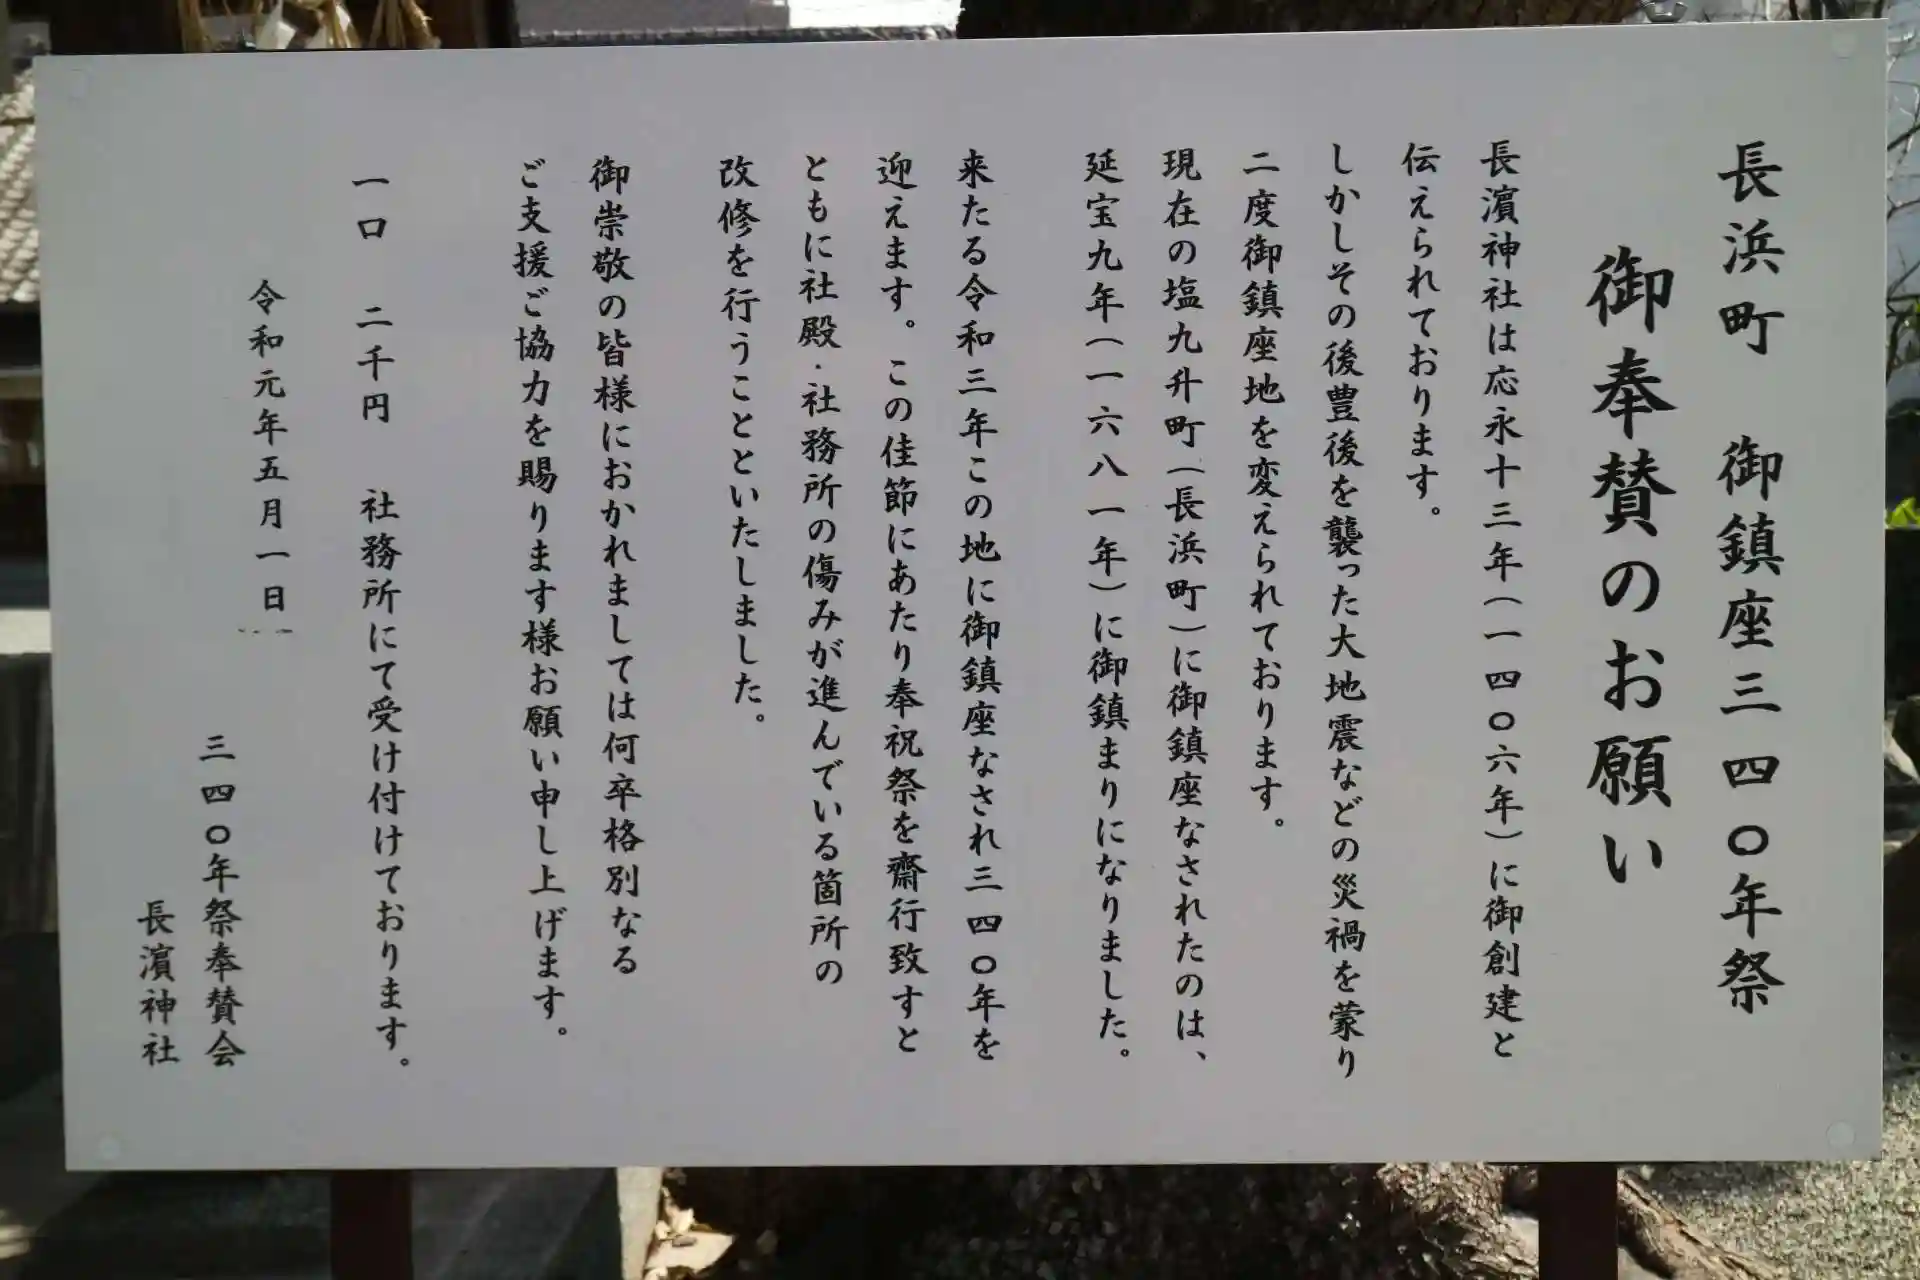 長浜町　御鎮座三四〇年祭
御奉賛のお願い
長濵神社は応永十三年（一四〇六年）に御創建と
伝えられております。
しかしその後豊後を襲った大地震などの災禍を蒙り
二度御鎮座地を変えられております。
現在の塩九升町（長浜町）に御鎮座なされたのは、
延宝九年（一六八一年）に御鎮まりになりました。
来たる令和三年この地に御鎮座なされ三四〇年を
迎えます。この佳節にあたり奉祝祭を齋行致すと
ともに社殿・社務所の傷みが進んでいる箇所の
改修を行うことといたしました。
御崇敬の皆様におかれましては何卒格別なる
ご支援ご協力を賜ります様お願い申し上げます。
一口　二千円　社務所にて受け付けております。
令和元年五月一日
三四〇年祭奉賛会
長濵神社